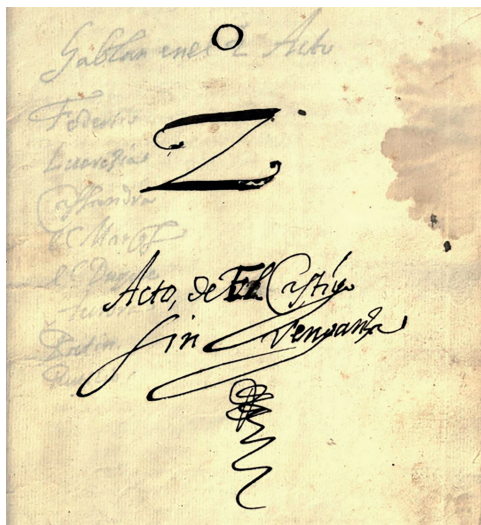 o
Hablan en el 2 Acto
2
Federico
Lucrezia
Cassandra
el Marq
el Duque
Acto, de El Castigo
sin Vengança
Batin